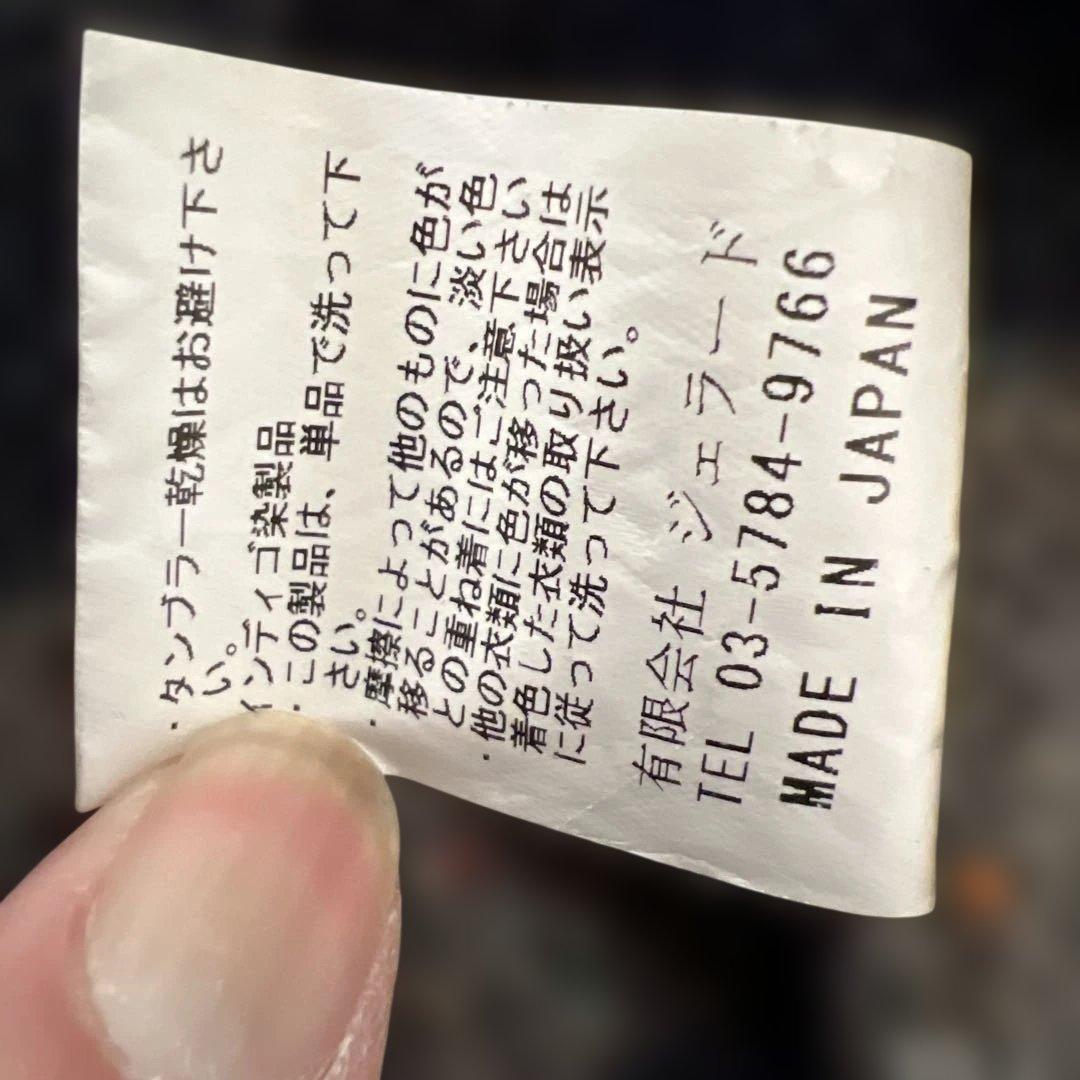 ・タンブラー乾燥はお避け下さ
い。
インディゴ染製品
・この製品は、単品で洗って下
さい。
・摩擦によって他のものに色が
移ることがあるので、淡い色
との重ね着にはご注意下さい
・他の衣類に色が移った場合は
着色した衣類の取り扱い表示
に従って洗って下さい。
有限会社 ジェラード
TEL 03-5784-9766
MADE IN JAPAN